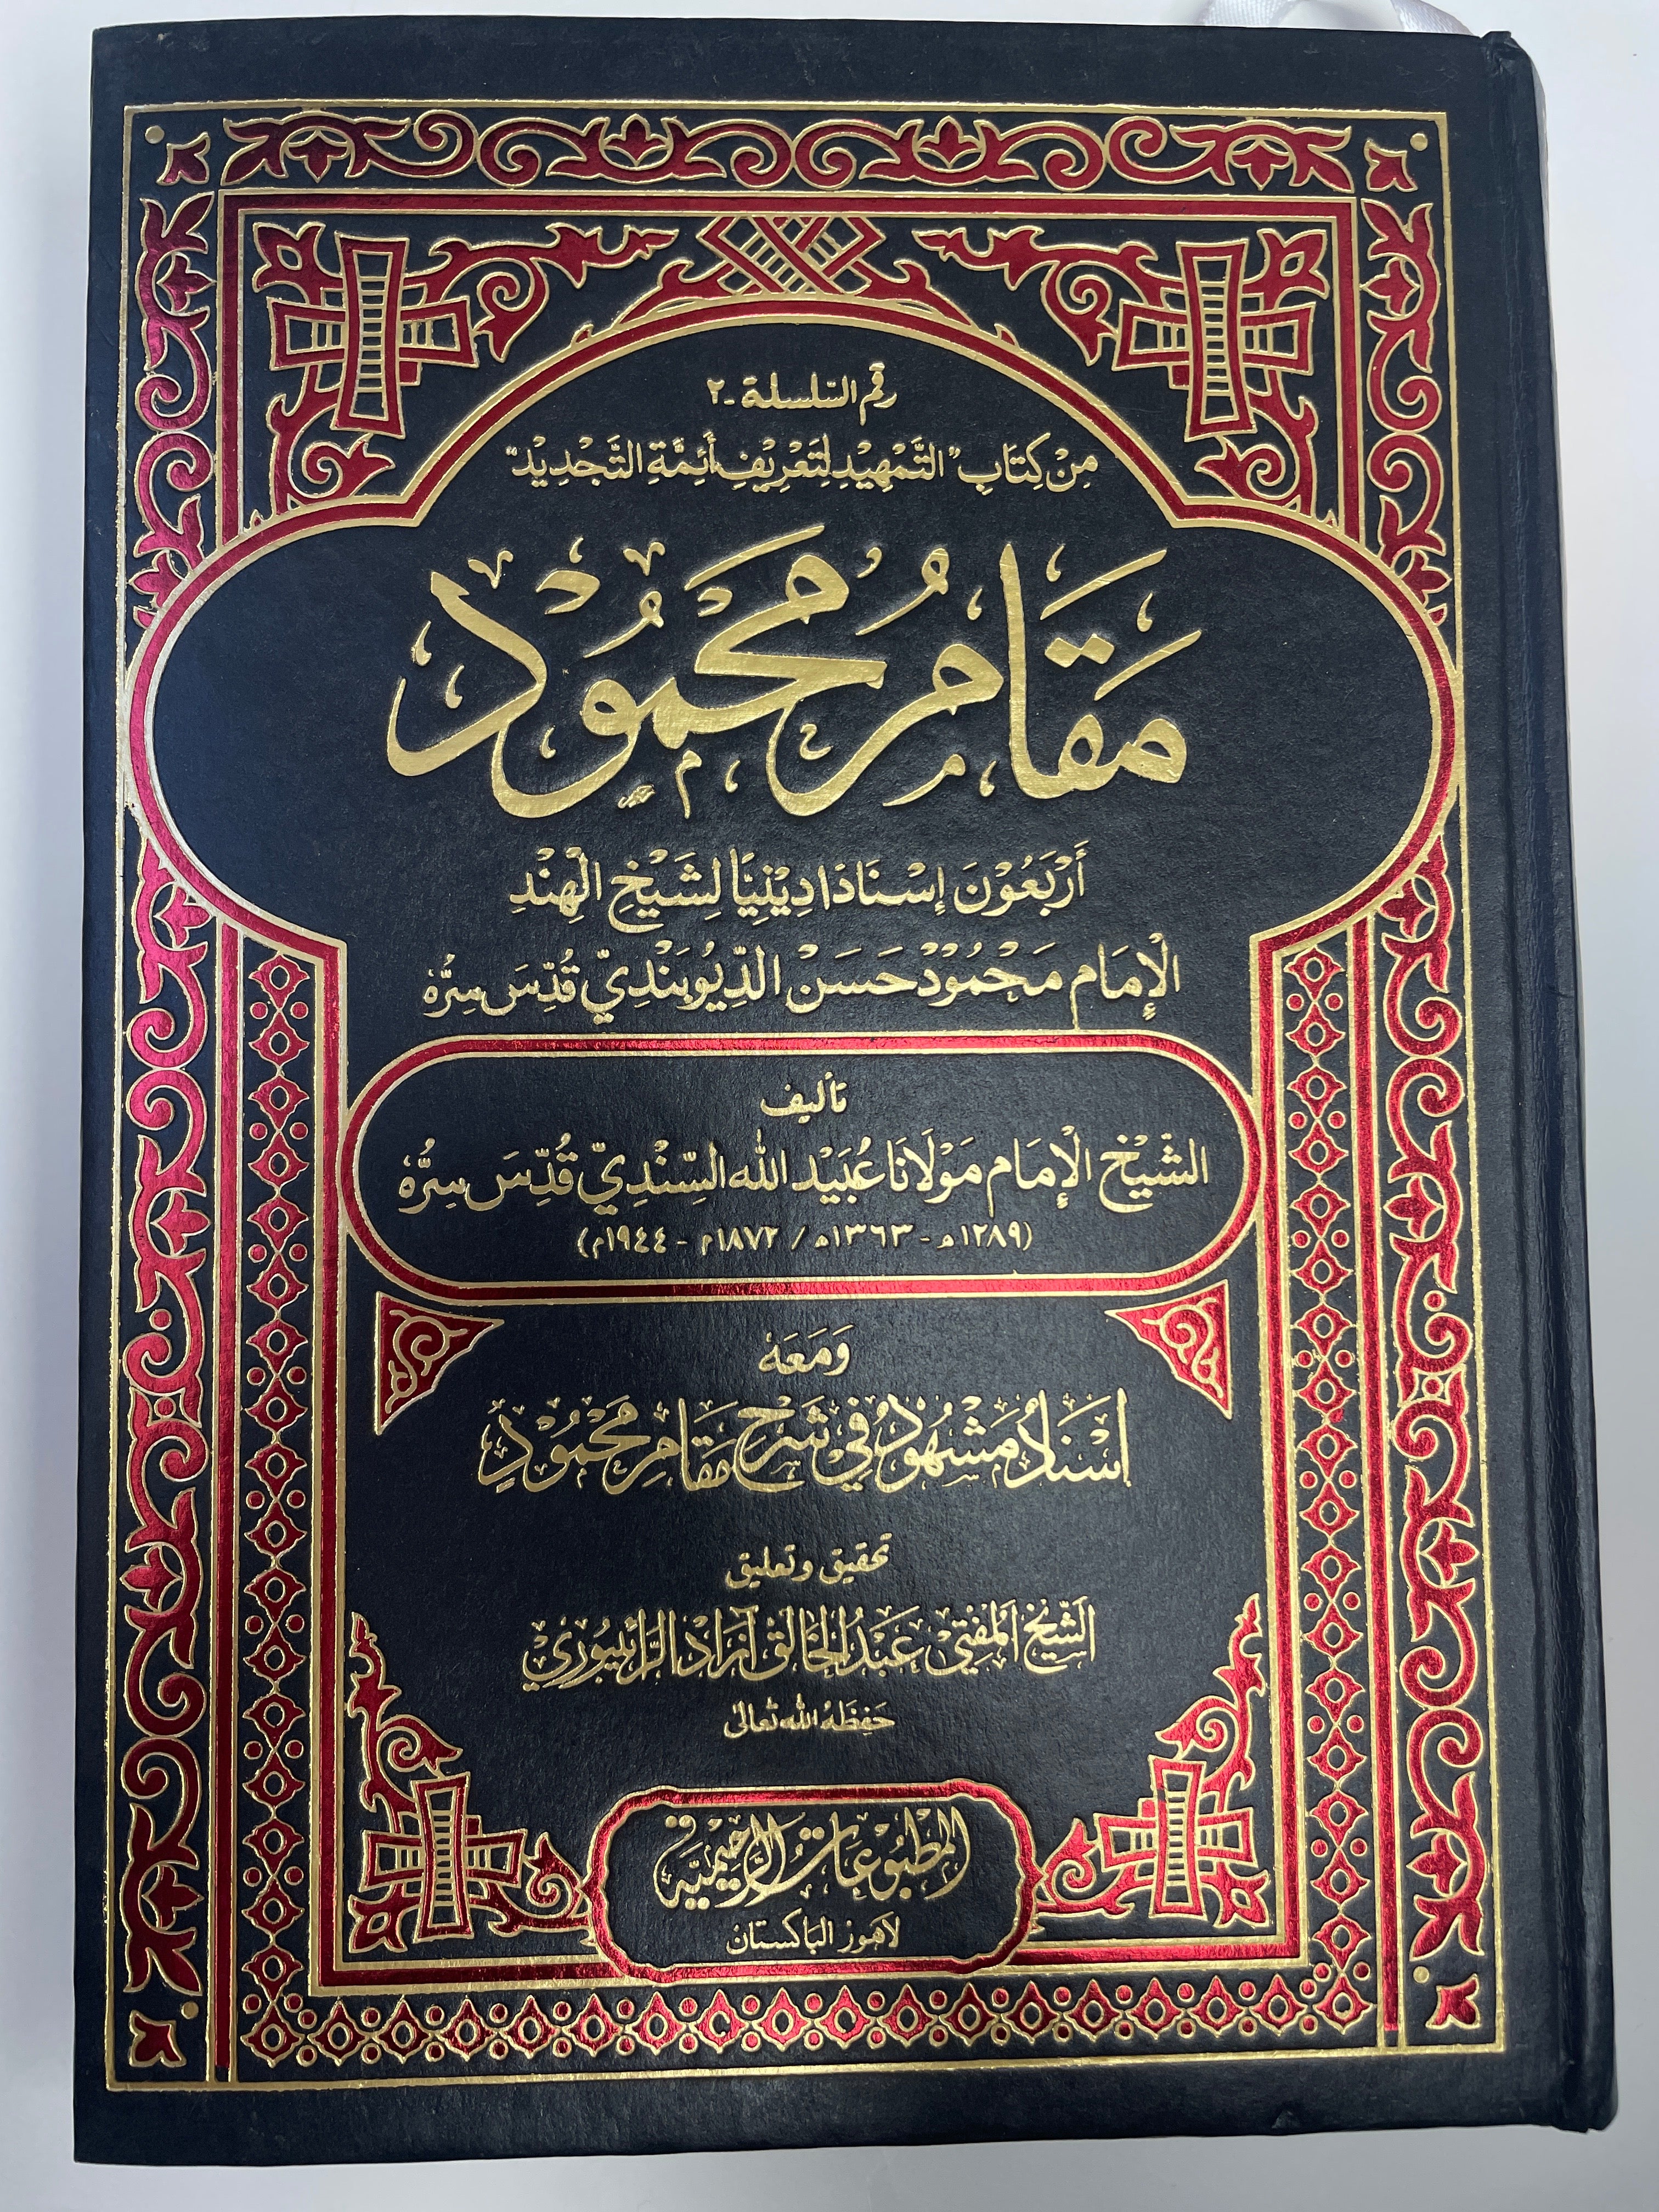 رقم السّلسلة - ٢
مِنْ كِتَابِ "التَّمْهِيْدِ لِتَعْرِيْفِ أَئِمَّةِ التَّجْدِيْدِ"
مَقَامُ مَحْمُوْدٍ
أَرْبَعُوْنَ إِسْنَادًا دِيْنِيًّا لِشَيْخِ الْهِنْدِ
الْإِمَام مَحْمُوْد حَسَنْ الدِّيُوْبَنْدِيّ قُدِّسَ سِرُّهٗ
تأليف
الشَّيْخ الْإِمَام مَوْلَانَا عُبَيْد الله السِّنْدِيّ قُدِّسَ سِرُّهٗ
(١٢٨٩هـ - ١٣٦٣هـ / ١٨٧٢م - ١٩٤٤م)
وَمَعَهٗ
إِسْنَادُ مَشْهُوْدٌ فِيْ شَرْحِ مَقَامِ مَحْمُوْدٍ
تحقيق وتعليق
الشَّيْخ الْمُفْتِيْ عَبْدُ الْخَالِق آزَاد الرَّائِيبُوْرِيْ
حَفِظَهُ الله تَعَالٰى
المَطْبُوْعَاتُ الرَّحِيْمِيَّة
لاهور الباكستان